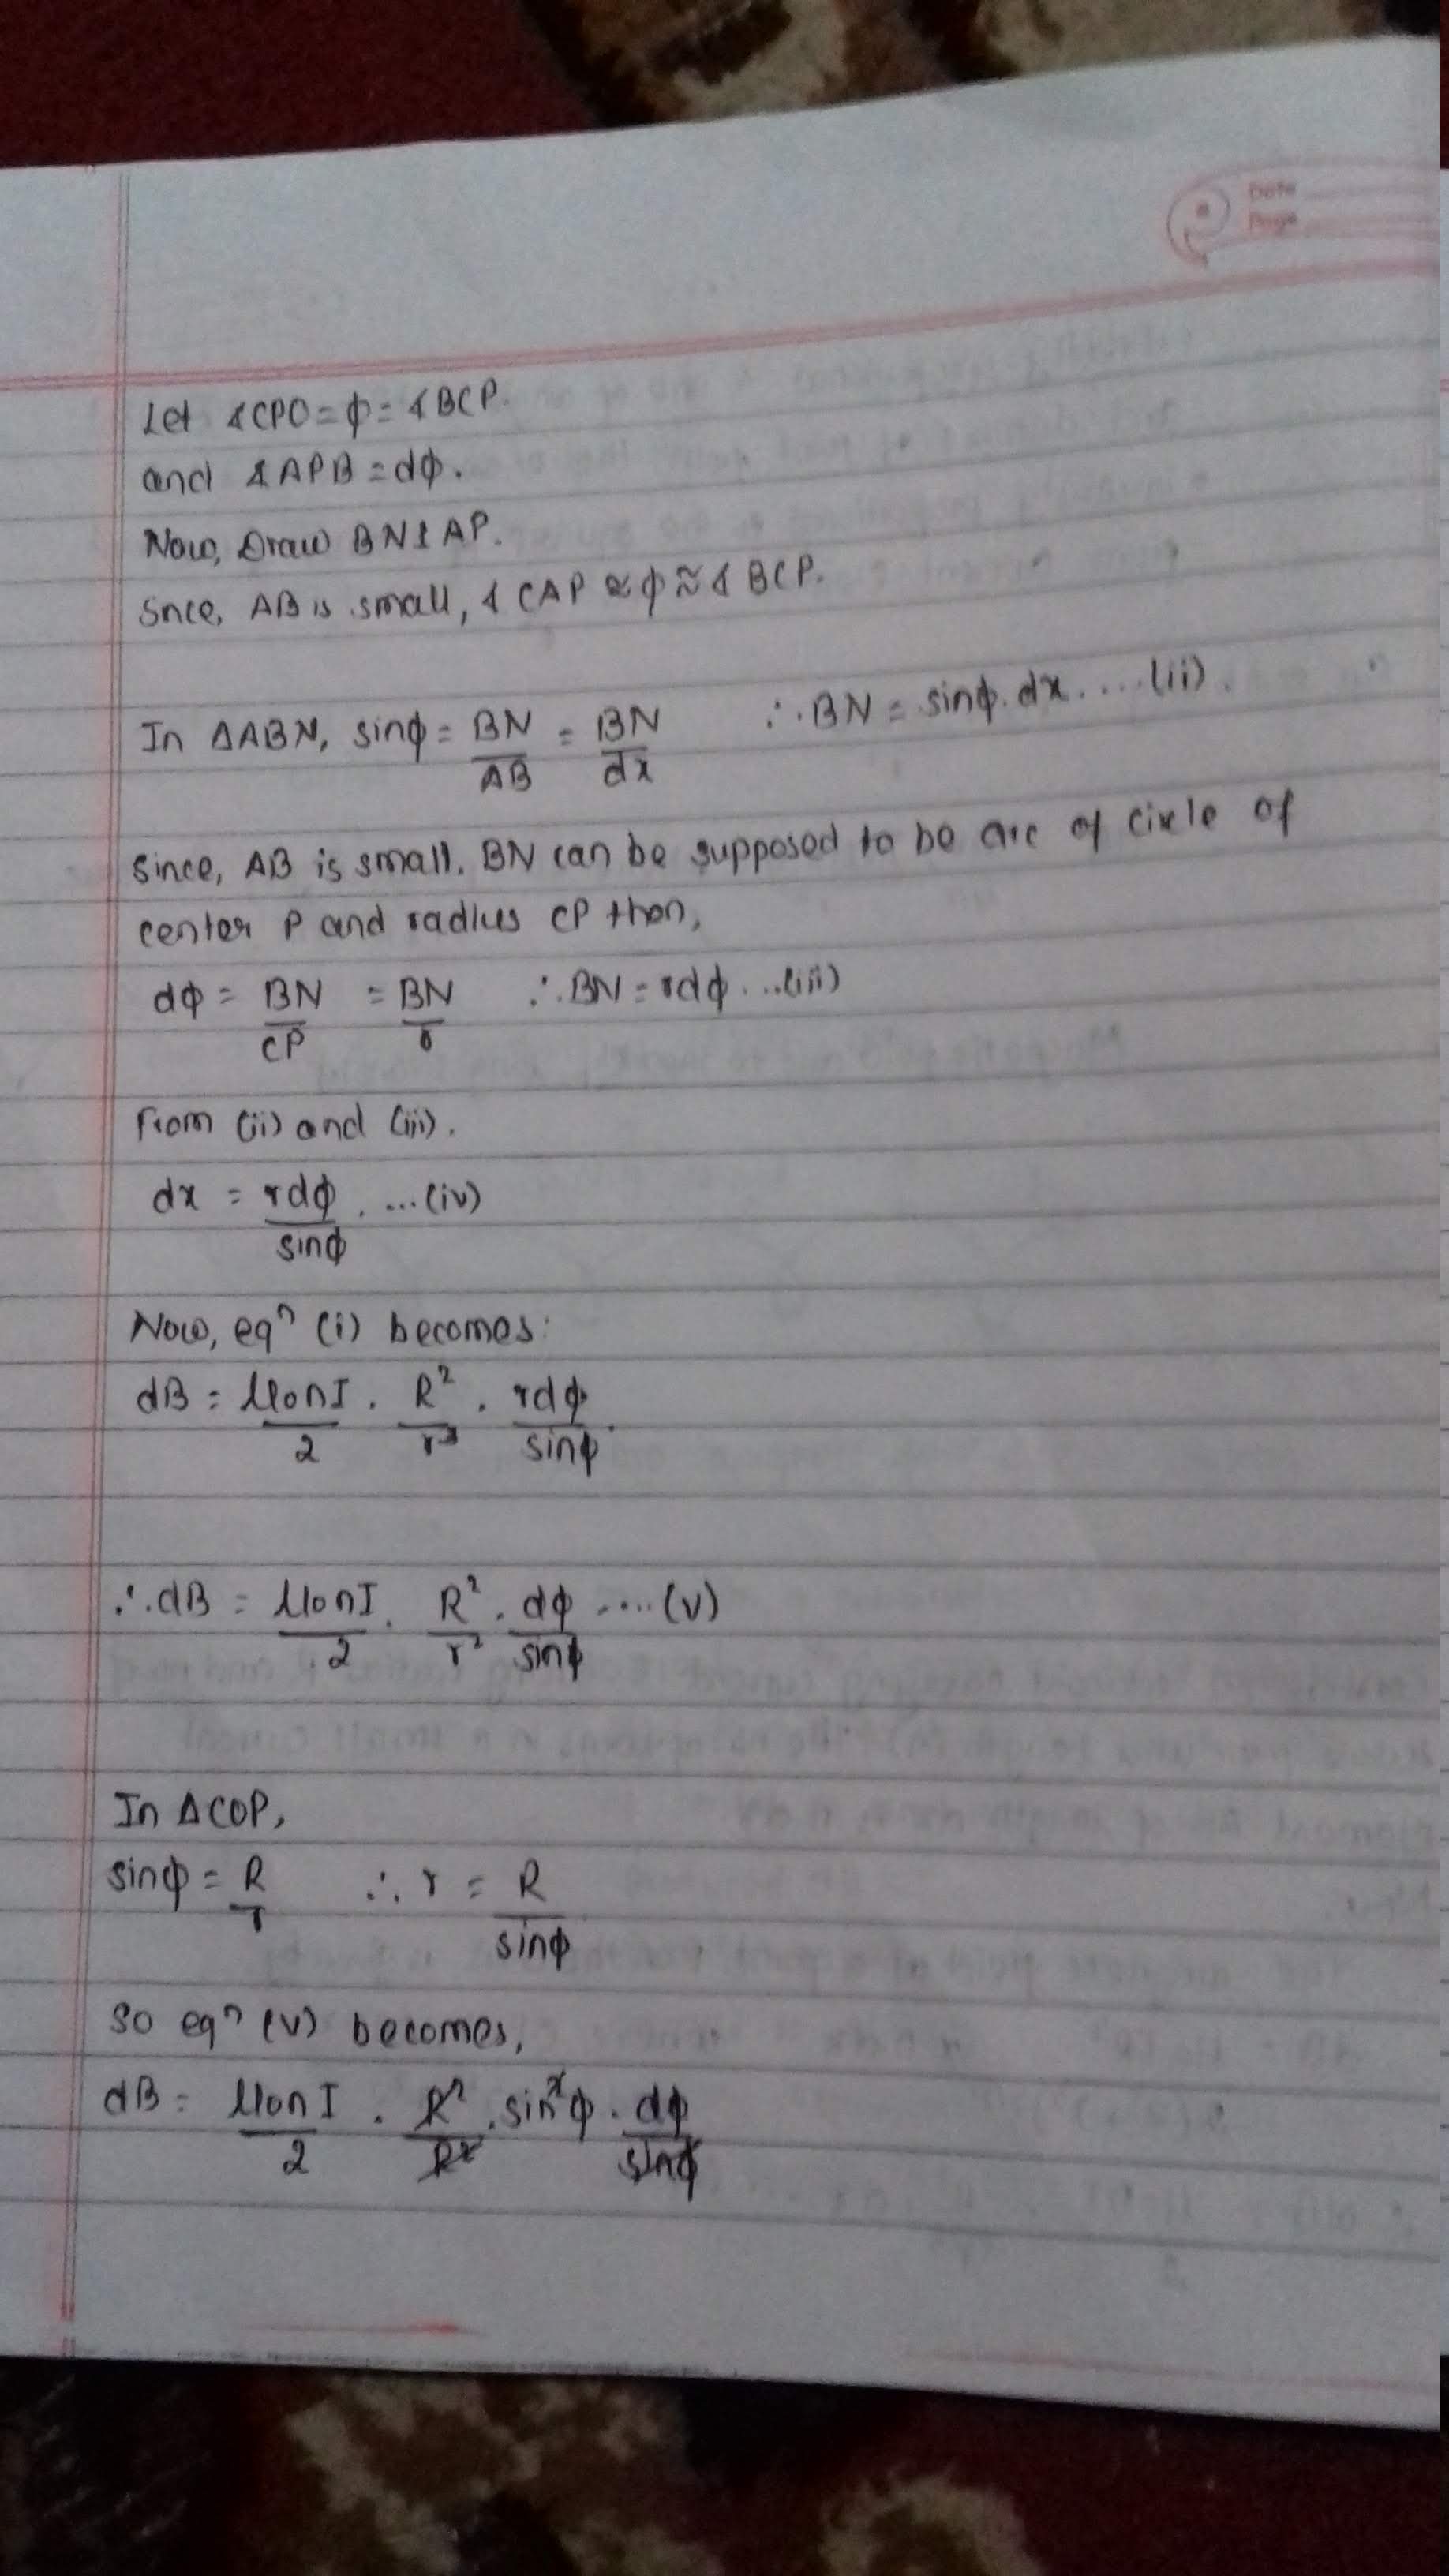 Date
Page
Let ∡CPO = ϕ = ∡BCP.
and ∡APB = dϕ.
Now, Draw BN⊥AP.
Snce, AB is small, ∡CAP ≈ ϕ ≈ ∡BCP.
In ΔABN, sinϕ = BN/AB = BN/dx ∴ BN = sinϕ.dx. ...(ii).
Since, AB is small. BN can be supposed to be arc of circle of
center P and radius CP then,
dϕ = BN/CP = BN/r ∴ BN = rdϕ ...(iii)
From (ii) and (iii).
dx = rdϕ/sinϕ. ...(iv)
Now, eqⁿ (i) becomes:
dB = μ₀nI/2 . R²/r³ . rdϕ/sinϕ.
∴ dB = μ₀nI/2 . R²/r² . dϕ/sinϕ ....(v)
In ΔCOP,
sinϕ = R/r ∴ r = R/sinϕ
So eqⁿ (v) becomes,
dB = μ₀nI/2 . R²/R² . sin²ϕ . dϕ/sinϕ